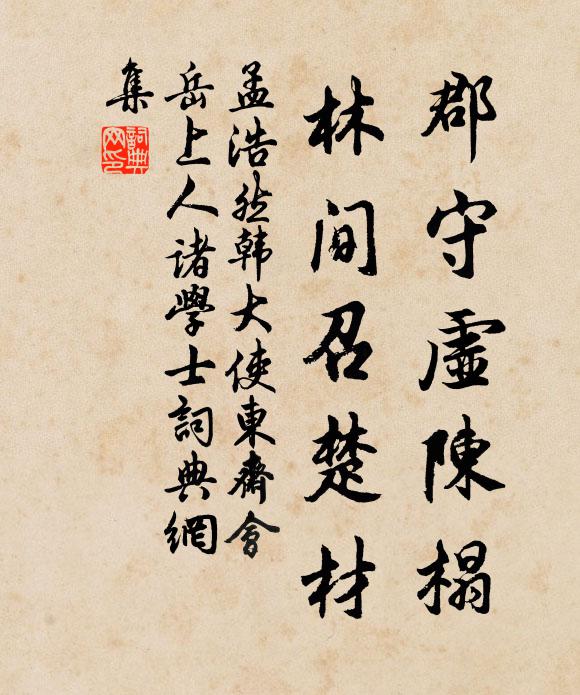 郡守虛陳榻
林間召楚材
孟浩然韓大使東齋會
岳上人諸學士詞典網
集
詞典網印